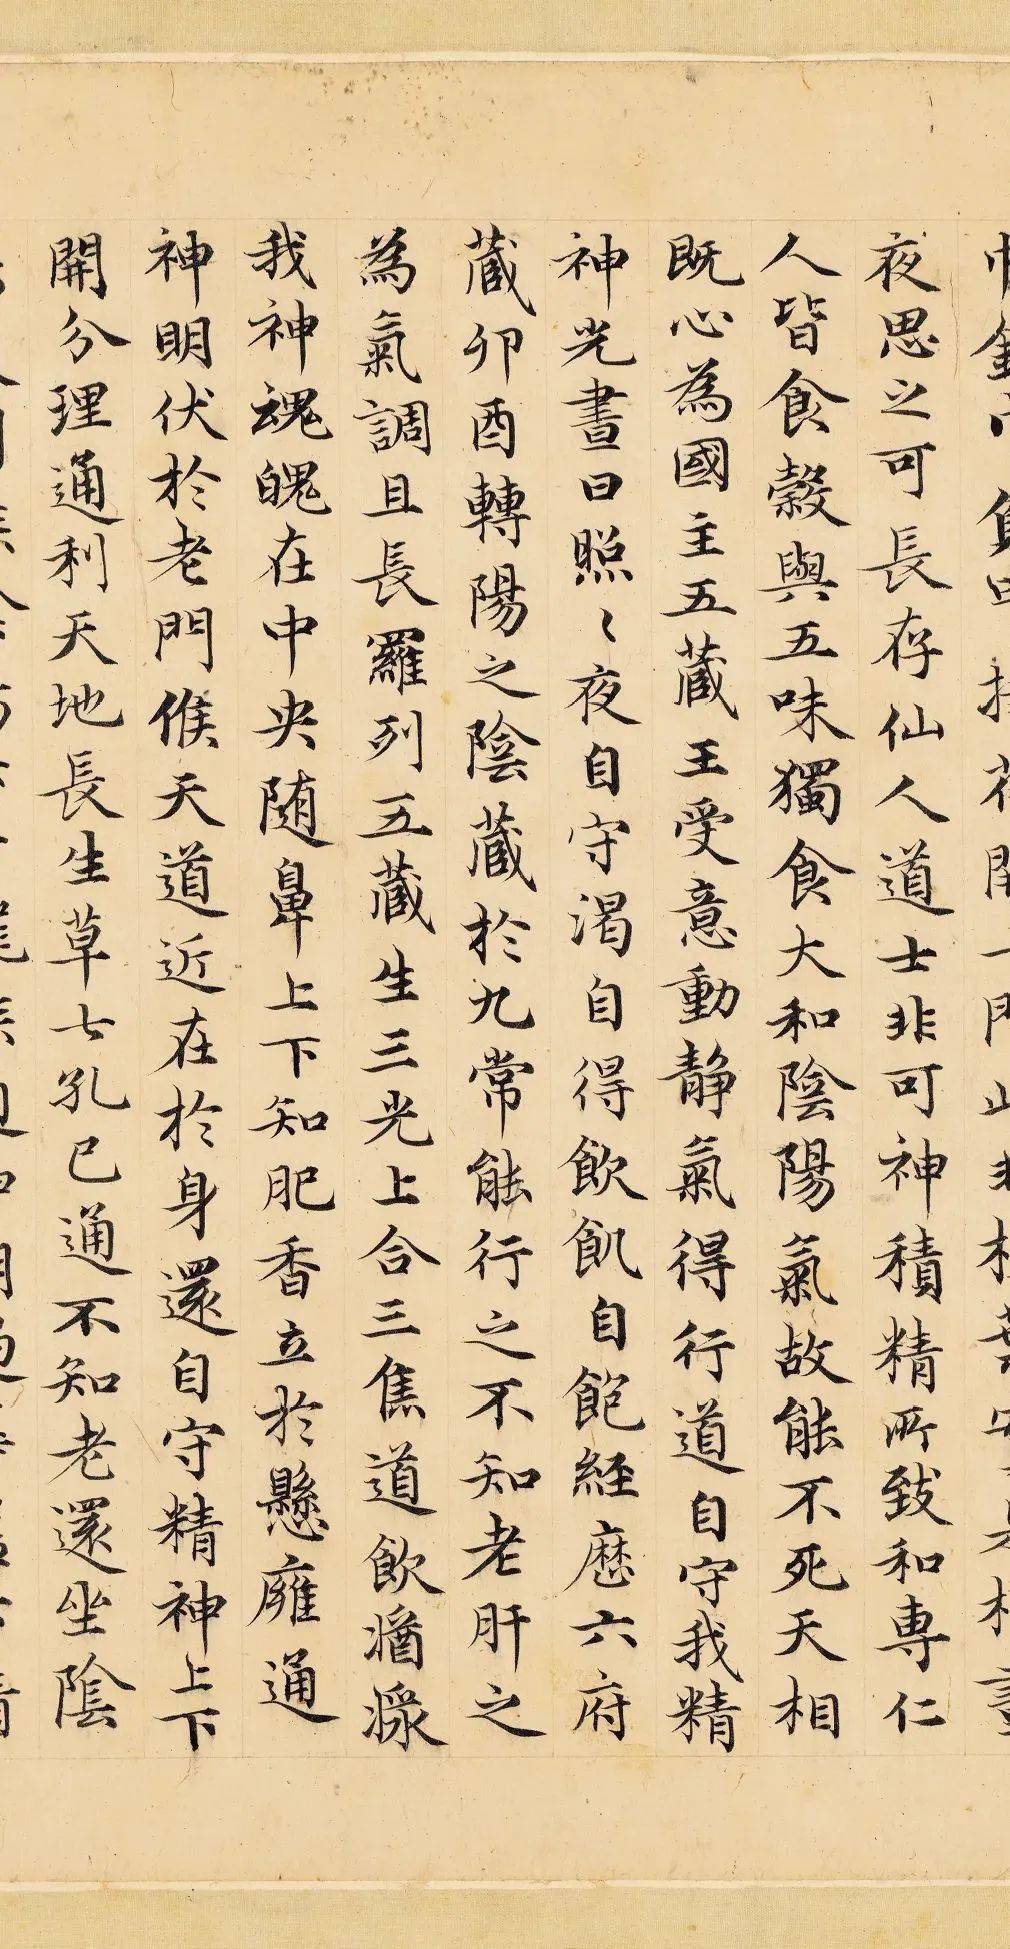 負甲持符開一門此非枝葉實是根晝
夜思之可長存仙人道士非可神積精所致和專仁
人皆食穀與五味獨食大和陰陽氣故能不死天相
既心為國主五藏王受意動靜氣得行道自守我精
神光晝日照〻夜自守渴自得飲飢自飽經歷六府
藏卯酉轉陽之陰藏於九常能行之不知老肝之
為氣調且長羅列五藏生三光上合三焦道飲醬漿
我神魂魄在中央随鼻上下知肥香立於懸廱通
神明伏於老門候天道近在於身還自守精神上下
開分理通利天地長生草七孔已通不知老還坐陰